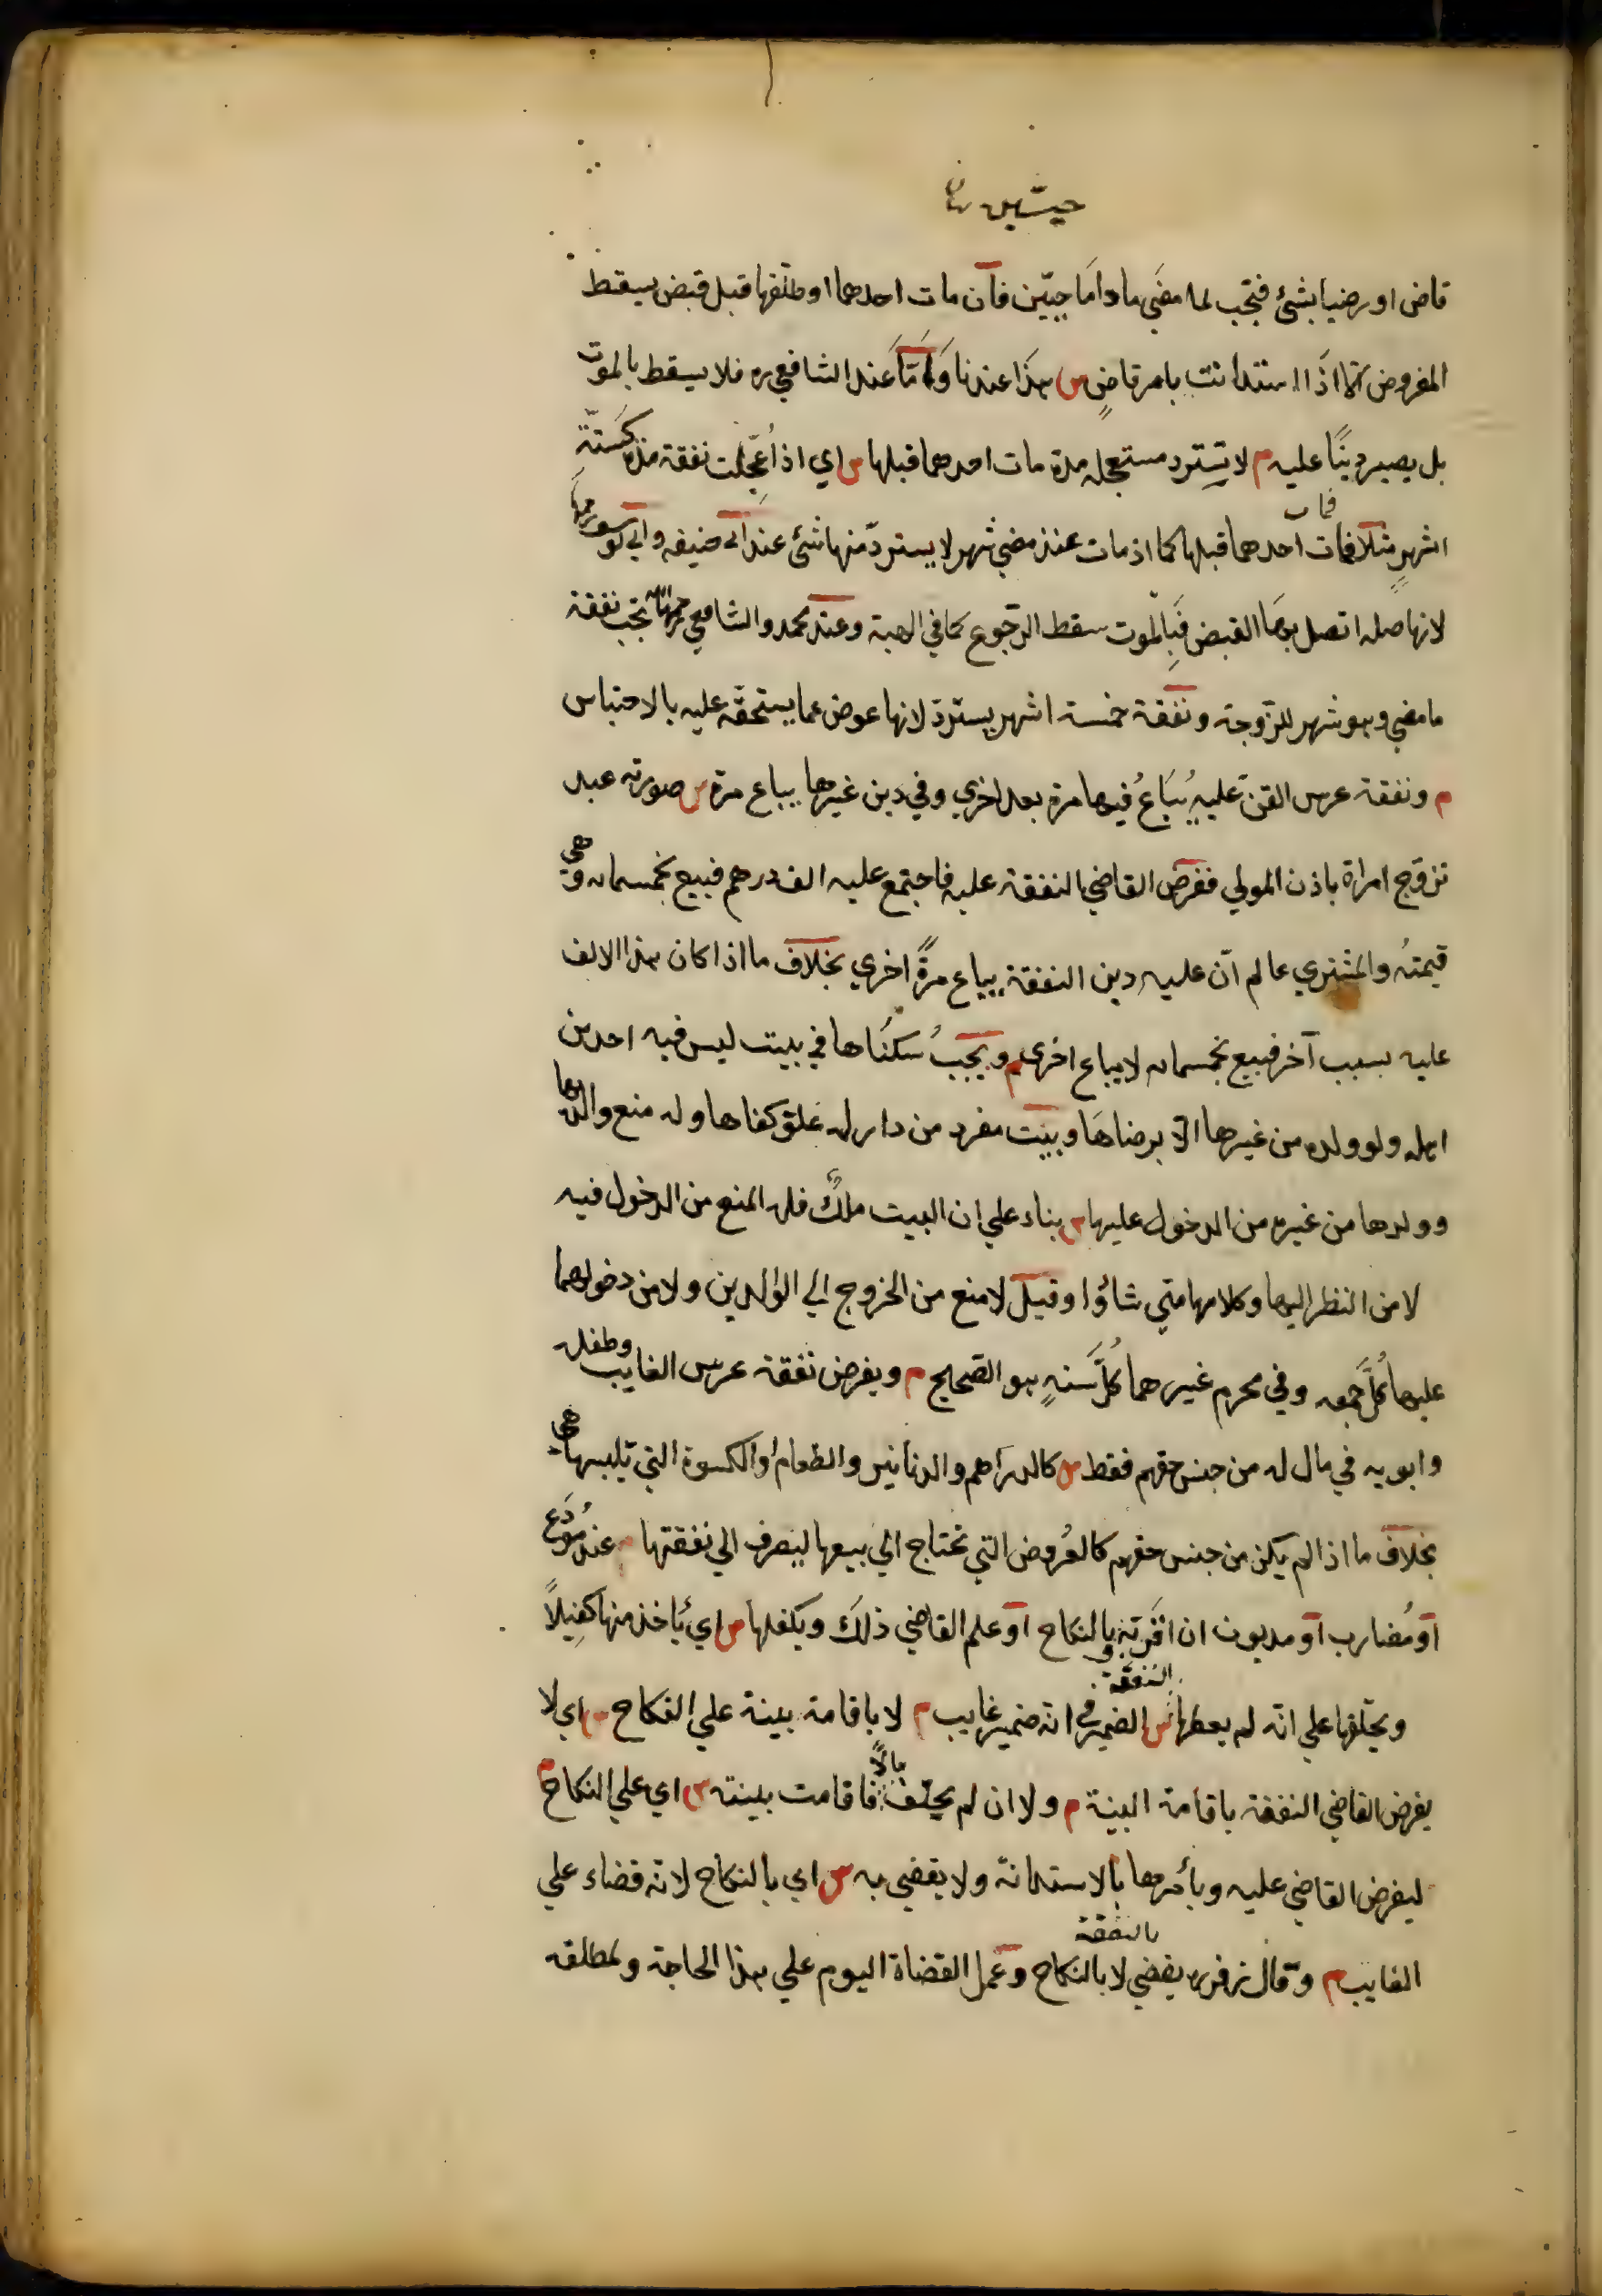 قاض او رضيا بشئ فتجب لما مضي ما داما حيّين فان مات احدهما او طلّقها قبل قبض يسقط
المفروض الا اذا استدانت بامر قاضٍ س هذا عندنا وَاَمّا عند الشافعي ره فلا يسقط بالموت
بل يصير دينًا عليه م لا تسترد مستعجله مدة مات احدهما قبلها س اي اذا عُجّلت نفقة مدة كستّة
اشهرٍ مثلا فمات احدهما قبلها كما اذ مات عند مضي شهر لا يستردّ منها شئ عند ابي حنيفه وابي يوسف
لانها صله اتصل بها القبض فبالموت سقط الرّجوع كما في الهبة وعند محمد والشافعي رحمهما الله تجب نفقة
ما مضي وهو شهر للزّوجة ونفقة خمسة اشهر يستردّ لانها عوض عما يستحقّه عليه بالاحتباس
م ونفقة عرس القنّ عليه يُبَاعُ فيها مرة بعد اخري وفي دين غيرها يباع مرة س صورته عبد
تزوّج امراة باذن المولي ففرض القاضي النفقة عليه فاجتمع عليه الف درهم فبيع بخمسمائه وهي
قيمتُه والمشتري عالم انّ عليه دين النفقة يباع مرةً اخري بخلاف ما اذا كان هذا الالف
عليه بسبب آخر فبيع بخمسمائه لا يباع اخري م ويجبُ سكنَاها في بيت ليس فيه احد من
اهله ولو ولده من غيرها الّا برضاهَا وبيت مفرد من دار له غلق كفاها وله منع والديها
وولدها من غيره من الدخول عليها س بناء علي ان البيت ملكٌ فله المنع من الدخول فيه
لا من النظر اليها وكلامها متي شاؤا وقيل لا منع من الخروج الي الوالدين ولا من دخولهما
عليها كُلّ جمعه وفي محرم غيرهما كُلّ سَنةٍ هو الصّحيح م ويفرض نفقة عرس الغايب وطفله
وابويه في مال له من جنس حقهم فقط س كالدراهم والدنانير والطعام او الكسوة التي تلبسها هي
بخلاف ما اذا لم يكن من جنس حقهم كالعُروض التي تحتاج الي بيعها ليصرف الي نفقتها م عند مُودَع
او مُضارب او مديون ان اقر به وبالنكاح او علم القاضي ذلك ويكفلها س اي يأخذ منها كفِيلًا
ويحلّفها علي انّه لم يعطها النفقة س الضمير في انه ضمير غايب م لا باقامة بينة علي النكاح س اي لا
يفرض القاضي النفقة باقامة البينة م ولا ان لم يخلّف مالًا فاقامت بينته س اي علي النكاح م
ليفرض القاضي عليه ويأمرها بالاستدانة ولا يقضي به س اي بالنكاح لانّه قضاء علي
الغايب م وقال زفر ره يقضي بالنفقة لا بالنكاح وعمل القضاة اليوم علي هذا الحاجة ولمطلقه